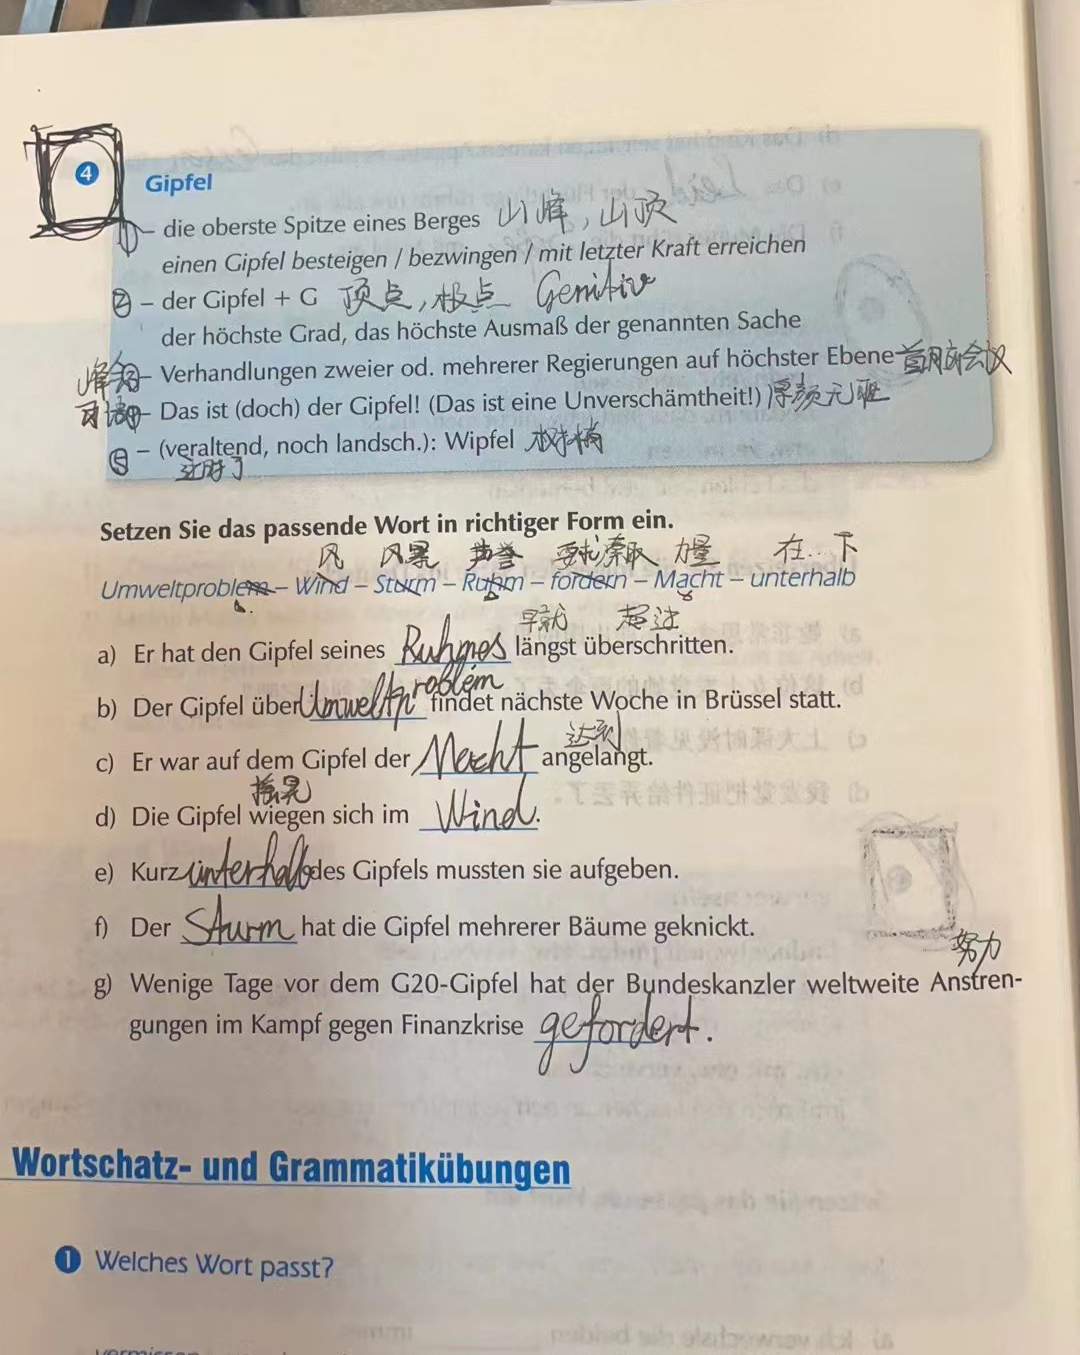 4 Gipfel
① – die oberste Spitze eines Berges 山峰，山顶
einen Gipfel besteigen / bezwingen / mit letzter Kraft erreichen
② – der Gipfel + G 顶点，极点 Genitiv
der höchste Grad, das höchste Ausmaß der genannten Sache
峰会 – Verhandlungen zweier od. mehrerer Regierungen auf höchster Ebene 首脑会议
– Das ist (doch) der Gipfel! (Das ist eine Unverschämtheit!) 厚颜无耻
⑤ – (veraltend, noch landsch.): Wipfel 树梢
过时了
Setzen Sie das passende Wort in richtiger Form ein.
风 风暴 声誉 要求 力量 在…下
Umweltproblem – Wind – Sturm – Ruhm – fordern – Macht – unterhalb
早就 超过
a) Er hat den Gipfel seines Ruhmes längst überschritten.
b) Der Gipfel über Umweltproblem findet nächste Woche in Brüssel statt.
达到
c) Er war auf dem Gipfel der Macht angelangt.
摇晃
d) Die Gipfel wiegen sich im Wind.
e) Kurz unterhalb des Gipfels mussten sie aufgeben.
f) Der Sturm hat die Gipfel mehrerer Bäume geknickt.
努力
g) Wenige Tage vor dem G20-Gipfel hat der Bundeskanzler weltweite Anstren-
gungen im Kampf gegen Finanzkrise gefordert.
Wortschatz- und Grammatikübungen
1 Welches Wort passt?
vermissen